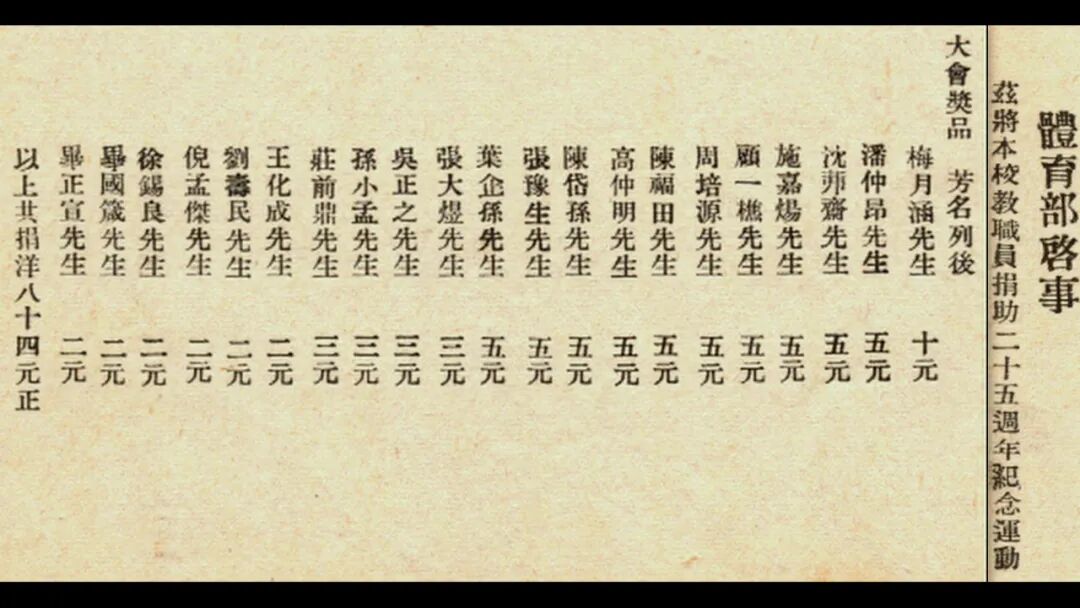 體育部啓事
茲將本校教職員捐助二十五週年紀念運動
大會獎品 芳名列後
梅月涵先生 十元
潘仲昂先生 五元
沈茀齋先生 五元
施嘉煬先生 五元
顧一樵先生 五元
周培源先生 五元
陳福田先生 五元
高仲明先生 五元
陳岱孫先生 五元
張豫生先生 五元
葉企孫先生 五元
張大煜先生 三元
吳正之先生 三元
孫小孟先生 三元
莊前鼎先生 三元
王化成先生 二元
劉壽民先生 二元
倪孟傑先生 二元
徐錫良先生 二元
畢國箴先生 二元
畢正宣先生 二元
以上共捐洋八十四元正